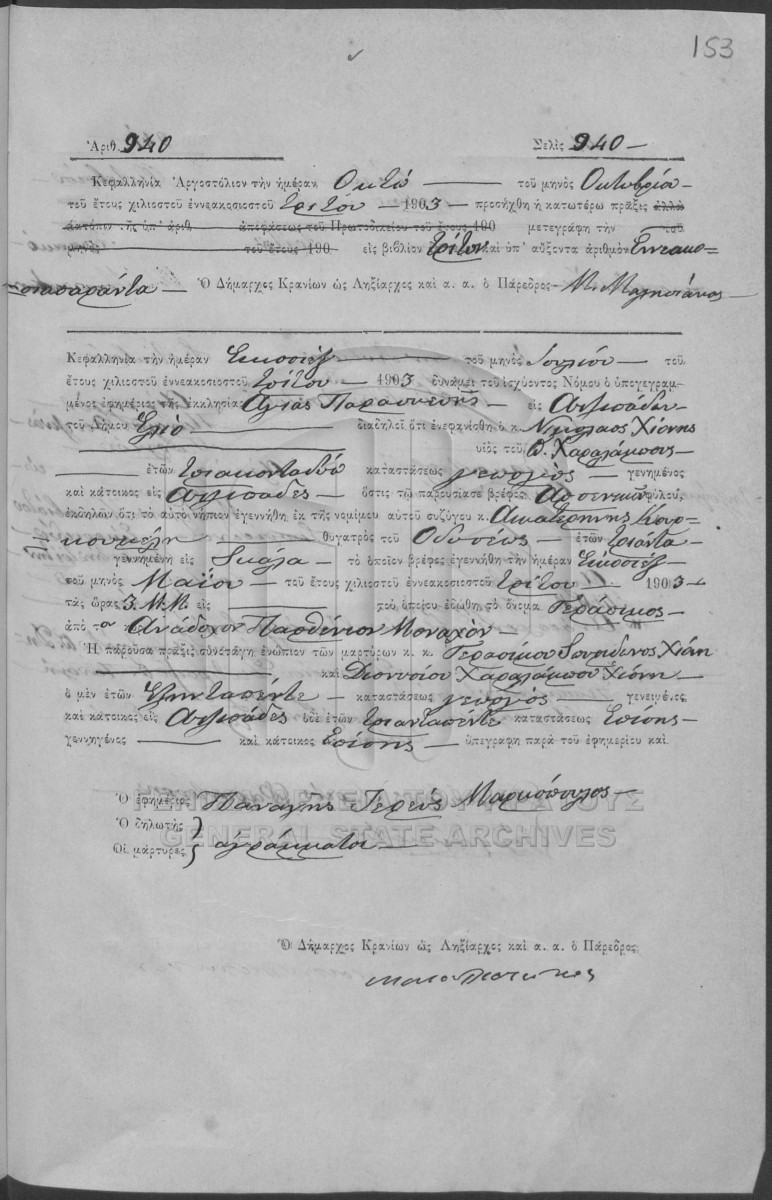 153
Ἀριθ. 940 Σελὶς 940 —
Κεφαλληνία Ἀργοστόλιον τὴν ἡμέραν Οκτώ — τοῦ μηνὸς Οκτωβρίου —
τοῦ ἔτους χιλιοστοῦ ἐννεακοσιοστοῦ τρίτου — 1903 — προσήχθη ἡ κατωτέρω πρᾶξις ἀλλὰ
κατόπιν τῆς ὑπ' ἀριθ ἀποφάσεως τοῦ Πρωτοδικείου τοῦ ἔτους 190 μετεγράφη τὴν τοῦ
μηνὸς τοῦ ἔτους 190 εἰς βιβλίον τρίτον καὶ ὑπ' αὔξοντα ἀριθμὸν Εννεακο=
σιατεσσαράντα — Ὁ Δήμαρχος Κρανίων ὡς Ληξίαρχος καὶ α. α. ὁ Πάρεδρος —
Κεφαλληνία τὴν ἡμέραν Εικοσιέξ — τοῦ μηνὸς Ιουλίου — τοῦ
ἔτους χιλιοστοῦ ἐννεακοσιοστοῦ τρίτου — 1903 δυνάμει τοῦ ἰσχύοντος Νόμου ὁ ὑπογεγραμ-
μένος ἐφημέριος τῆς ἐκκλησίας Αγίας Παρασκευῆς — εἰς
τοῦ Δήμου Ελιό διαδηλοῖ ὅτι ἐνεφανίσθη ὁ κ. Νικόλαος Χιόνης
υἱὸς τοῦ Χαραλάμπους
— ἐτῶν τριακονταδύο καταστάσεως γεωργὸς — γενημένος
καὶ κάτοικος εἰς — ὅστις τῷ παρουσίασε βρέφος Αρσενικοῦ φύλου,
ἐκδηλῶν ὅτι τὸ αὐτὸ νήπιον ἐγεννήθη ἐκ τῆς νομίμου αὐτοῦ συζύγου κ. Αικατερίνης Κουρ=
κουμέλη — θυγατρὸς τοῦ Οδυσέως — ἐτῶν τριάντα —
γεννημένη εἰς Σκάλα — τὸ ὁποῖον βρέφος ἐγεννήθη τὴν ἡμέραν Εἰκοσιέξ
τοῦ μηνὸς Μαΐου — τοῦ ἔτους χιλιοστοῦ ἐννεακοσιοστοῦ τρίτου — 1903 —
τὰς ὥρας 3. Μ.Μ. εἰς — τοῦ ὁποίου ἐδώθη τὸ ὄνομα Γεράσιμος —
ἀπὸ τον Ανάδοχον Παρθένιον Μοναχὸν —
Ἡ παροῦσα πρᾶξις συνετάγη ἐνώπιον τῶν μαρτύρων κ. κ. Γερασίμου Σπυρίδωνος Χιόνη
— καὶ Διονυσίου Χαραλάμπου Χιόνη —
ὁ μὲν ἐτῶν Εξηνταπέντε — καταστάσεως γεωργὸς — γενειμένος
καὶ κάτοικος εἰς ὁδὲ ἐτῶν τριανταπέντε καταστάσεως Επίσης —
γεννηγένος — καὶ κάτοικος Επίσης — ὑπεγράφη παρὰ τοῦ ἐφημερίου καὶ
Ὁ ἐφημέριος Παναγῆς Ιερεύς Μαρκόπουλος —
Ὁ δηλωτὴς
Οἱ μάρτυρες } αγράμματοι —
ΓΕΝΙΚΑ ΑΡΧΕΙΑ ΤΟΥ ΚΡΑΤΟΥΣ
GENERAL STATE ARCHIVES
Ὁ Δήμαρχος Κρανίων ὡς Ληξίαρχος καὶ α. α. ὁ Πάρεδρος